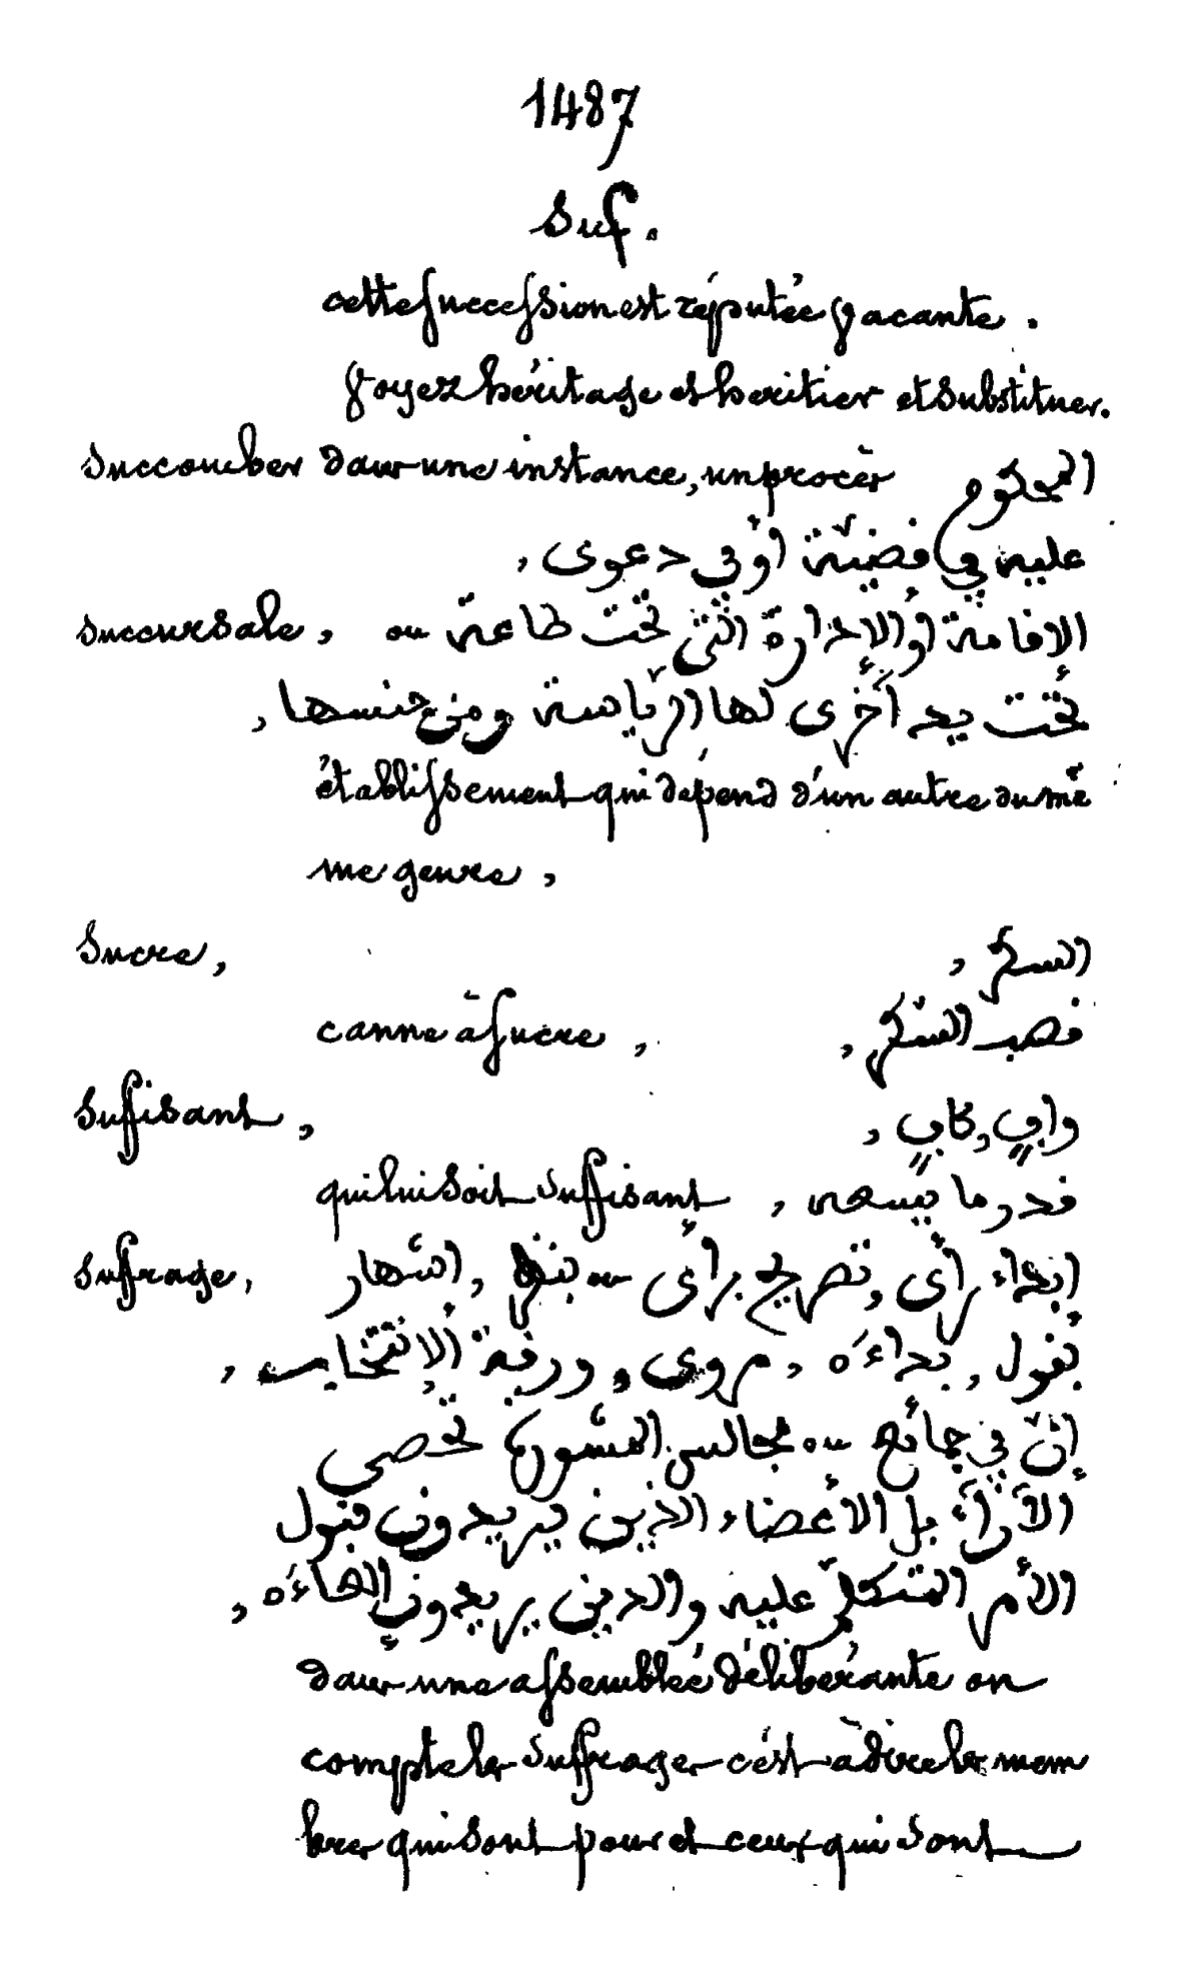 1487
Suf.
cette succession est réputée vacante.
voyez héritage et heritier et substituer.
succomber dans une instance, un procès المحكوم
عليه في قضيّة أو في دعوى,
succursale, ou الإقامة أو الإدارة التي تحت طاعة
تحت يد أخرى لها الرّياسة ومن جنسها,
établissement qui dépend d'un autre du mê
me genre,
Sucre, السكر,
canne à sucre, قصب السّكر,
Suffisant, وافٍ, كافٍ,
qui lui soit suffisant, قدر ما يسعه
suffrage, إبداء رأى, تصريح برأى ou إشهار
بقول, بداءَه, مروى, ورقة الإنتخاب,
إنّ في جمائع ou مجالس المشورة تحصى
الآرآء بل الأعضاء الذين يريدون قبول
الأمر المتكلّم عليه والدين يريدون إلهاءَه,
dans une assemblée délibérante on
compte les suffrages c'est à dire les mem
bres qui sont pour et ceux qui sont